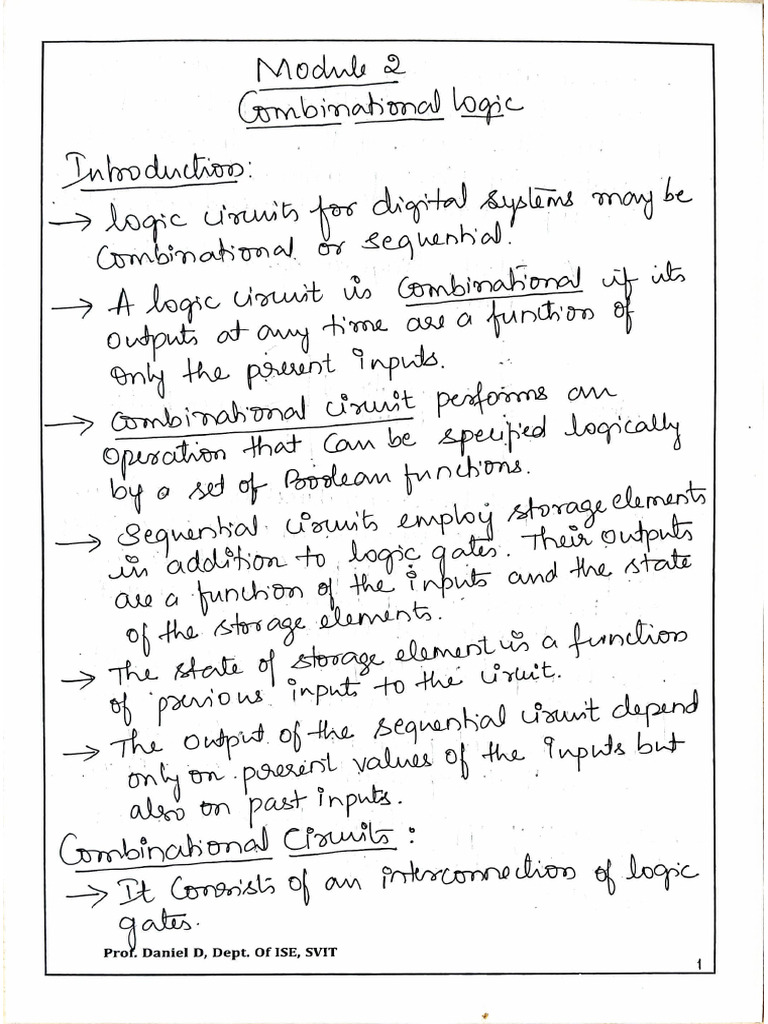 Module 2
Combinational Logic
Introduction:
→ Logic circuits for digital systems may be
Combinational or sequential.
→ A logic circuit is Combinational if its
outputs at any time are a function of
only the present inputs.
→ Combinational circuit performs an
operation that can be specified logically
by a set of Boolean functions.
→ Sequential circuits employ storage elements
in addition to logic gates. Their outputs
are a function of the inputs and the state
of the storage elements.
→ The state of storage element is a function
of previous inputs to the circuit.
→ The output of the sequential circuit depend
only on present values of the inputs but
also on past inputs.
Combinational Circuits :
→ It Consists of an interconnection of logic
gates.
Prof. Daniel D, Dept. Of ISE, SVIT
1